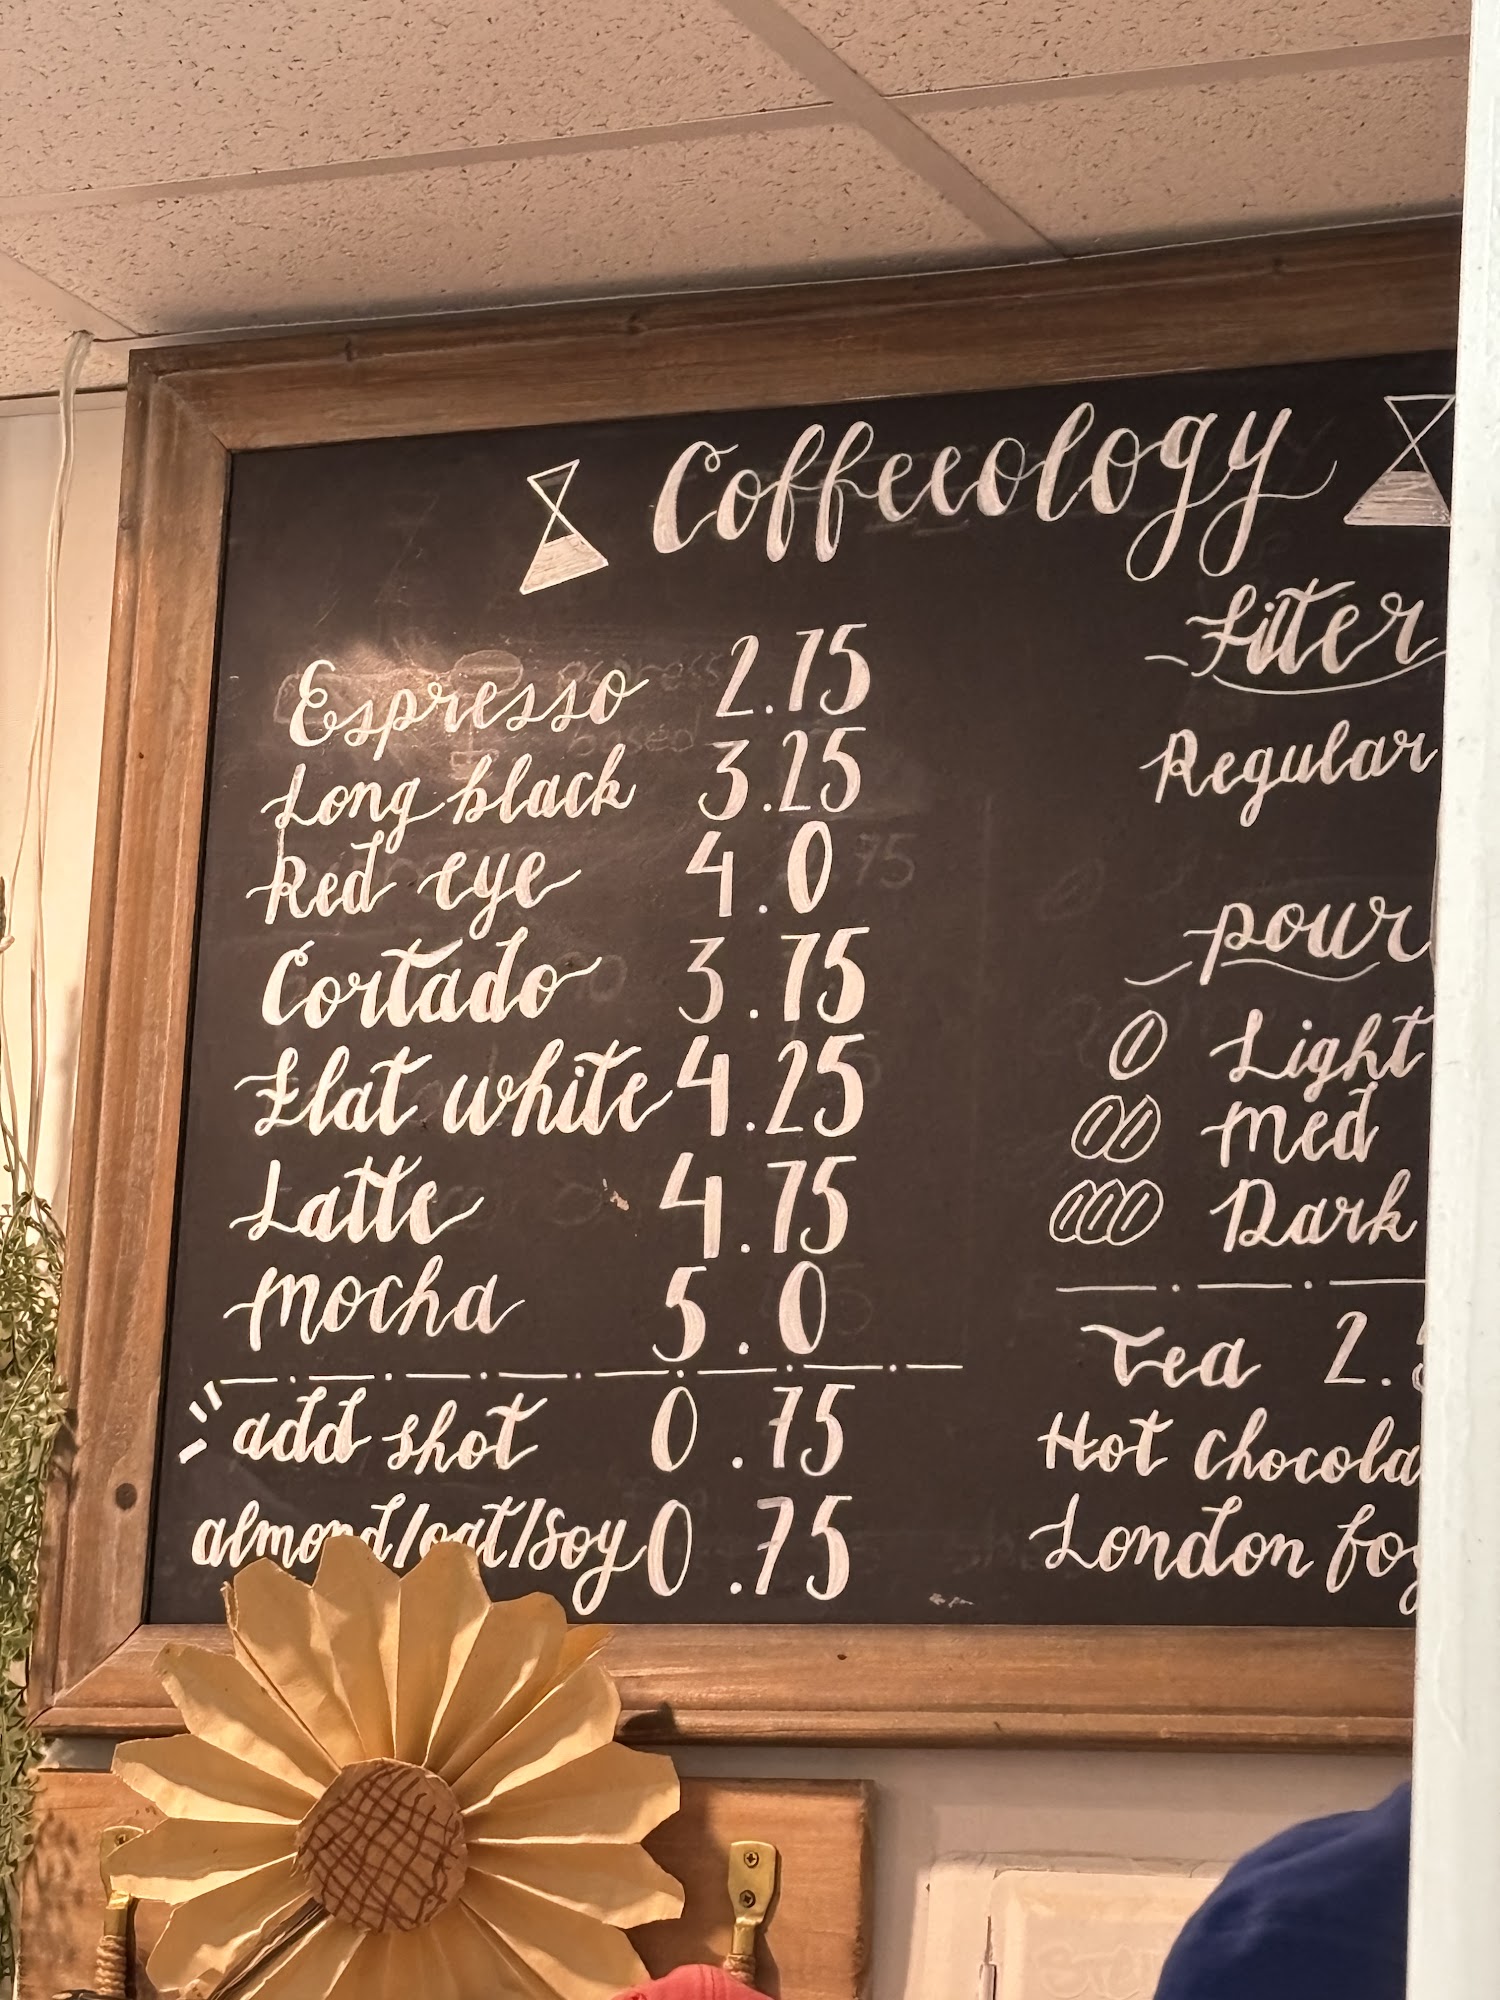 Coffeeology
Espresso 2.75
Long black 3.25
Red eye 4.0
Cortado 3.75
Flat white 4.25
Latte 4.75
Mocha 5.0
add shot 0.75
almond/oat/soy 0.75
Filter
Regular
pour
Light
Med
Dark
Tea 2.
Hot chocola
London fog